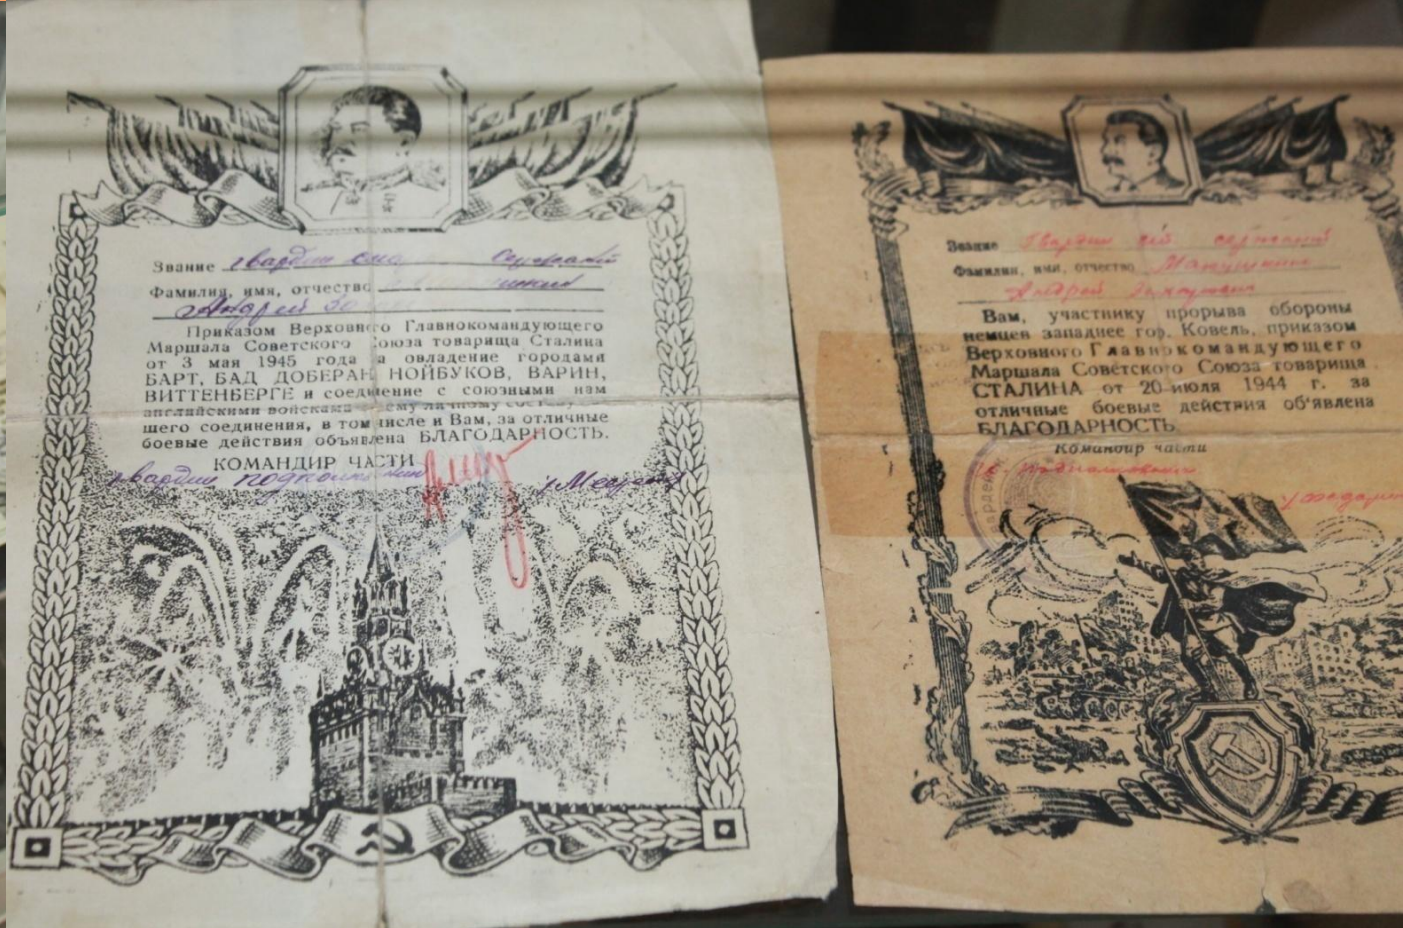 Звание гвардии
Фамилия, имя, отчество
Андрей
Приказом Верховного Главнокомандующего
Маршала Советского Союза товарища Сталина
от 3 мая 1945 года а овладение городами
БАРТ, БАД ДОБЕРАН НОЙБУКОВ, ВАРИН,
ВИТТЕНБЕРГЕ и соединение с союзными нам
английскими войсками всему личному
шего соединения, в том числе и Вам, за отличные
боевые действия объявлена БЛАГОДАРНОСТЬ.
КОМАНДИР ЧАСТИ
гвардии
Звание Гвардии сержант
Фамилия, имя, отчество
Андрей
Вам, участнику прорыва обороны
немцев западнее гор. Ковель, приказом
Верховного Главнокомандующего
Маршала Советского Союза товарища
СТАЛИНА от 20 июля 1944 г. за
отличные боевые действия об'явлена
БЛАГОДАРНОСТЬ.
Командир части